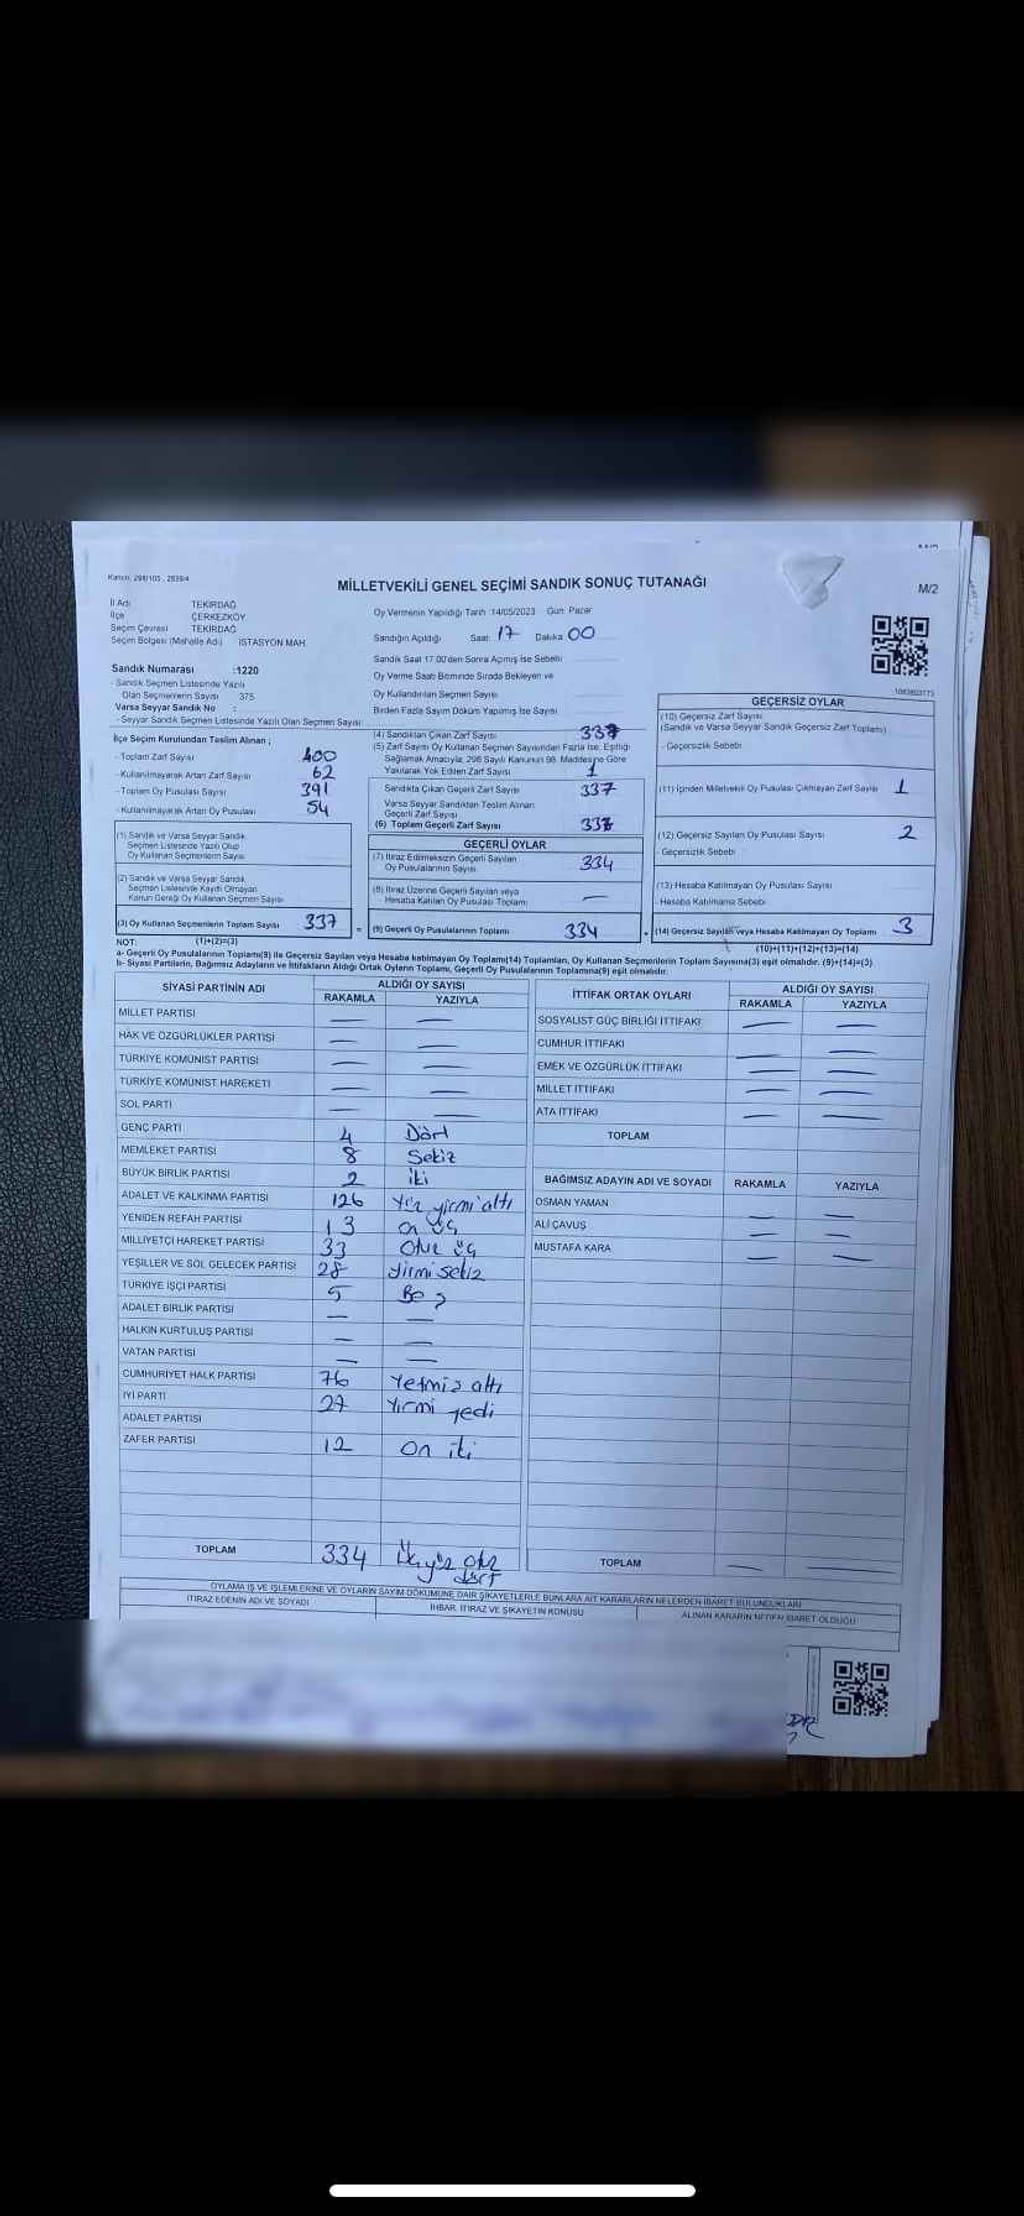 Kanun, 298/105 , 2839/4
MİLLETVEKİLİ GENEL SEÇİMİ SANDIK SONUÇ TUTANAĞI
M/2
İl Adı TEKİRDAĞ
İlçe ÇERKEZKÖY
Seçim Çevresi TEKİRDAĞ
Seçim Bölgesi (Mahalle Adı) İSTASYON MAH.
Sandık Numarası :1220
- Sandık Seçmen Listesinde Yazılı
Olan Seçmenlerin Sayısı 375
Varsa Seyyar Sandık No :
- Seyyar Sandık Seçmen Listesinde Yazılı Olan Seçmen Sayısı
Oy Vermenin Yapıldığı Tarih 14/05/2023 Gün: Pazar
Sandığın Açıldığı Saat: 17 Dakika 00
Sandık Saat 17.00'den Sonra Açmış İse Sebebi
Oy Verme Saati Bitiminde Sırada Bekleyen ve
Oy Kullandırılan Seçmen Sayısı
Birden Fazla Sayım Döküm Yapılmış İse Sayısı
İlçe Seçim Kurulundan Teslim Alınan ;
- Toplam Zarf Sayısı 400
- Kullanılmayarak Artan Zarf Sayısı 62
- Toplam Oy Pusulası Sayısı 391
- Kullanılmayarak Artan Oy Pusulası 54
(1) Sandık ve Varsa Seyyar Sandık
Seçmen Listesinde Yazılı Olup
Oy Kullanan Seçmenlerin Sayısı
(2) Sandık ve Varsa Seyyar Sandık
Seçmen Listesinde Kaydı Olmayan
Kanun Gereği Oy Kullanan Seçmen Sayısı
(3) Oy Kullanan Seçmenlerin Toplam Sayısı 337
(1)+(2)=(3)
(4) Sandıktan Çıkan Zarf Sayısı 337
(5) Zarf Sayısı Oy Kullanan Seçmen Sayısından Fazla İse, Eşitliği
Sağlamak Amacıyla, 298 Sayılı Kanunun 98. Maddesine Göre
Yakılarak Yok Edilen Zarf Sayısı 1
Sandıkta Çıkan Geçerli Zarf Sayısı 337
Varsa Seyyar Sandıktan Teslim Alınan
Geçerli Zarf Sayısı
(6) Toplam Geçerli Zarf Sayısı 337
GEÇERLİ OYLAR
(7) İtiraz Edilmeksizin Geçerli Sayılan
Oy Pusulalarının Sayısı 334
(8) İtiraz Üzerine Geçerli Sayılan veya
Hesaba Katılan Oy Pusulası Toplamı —
= (9) Geçerli Oy Pusulalarının Toplamı 334
1083803173
GEÇERSİZ OYLAR
(10) Geçersiz Zarf Sayısı
(Sandık ve Varsa Seyyar Sandık Geçersiz Zarf Toplamı)
- Geçersizlik Sebebi
(11) İçinden Milletvekili Oy Pusulası Çıkmayan Zarf Sayısı 1
(12) Geçersiz Sayılan Oy Pusulası Sayısı 2
- Geçersizlik Sebebi
(13) Hesaba Katılmayan Oy Pusulası Sayısı
- Hesaba Katılmama Sebebi
+ (14) Geçersiz Sayılan veya Hesaba Katılmayan Oy Toplamı 3
(10)+(11)+(12)+(13)=(14)
NOT:
a- Geçerli Oy Pusulalarının Toplamı(9) ile Geçersiz Sayılan veya Hesaba katılmayan Oy Toplamı(14) Toplamları, Oy Kullanan Seçmenlerin Toplam Sayısına(3) eşit olmalıdır. (9)+(14)=(3)
b- Siyasi Partilerin, Bağımsız Adayların ve İttifakların Aldığı Ortak Oyların Toplamı, Geçerli Oy Pusulalarının Toplamına(9) eşit olmalıdır.
SİYASİ PARTİNİN ADI ALDIĞI OY SAYISI
RAKAMLA YAZIYLA
MİLLET PARTİSİ — —
HAK VE ÖZGÜRLÜKLER PARTİSİ — —
TÜRKİYE KOMÜNİST PARTİSİ — —
TÜRKİYE KOMÜNİST HAREKETİ — —
SOL PARTİ — —
GENÇ PARTİ 4 Dört
MEMLEKET PARTİSİ 8 Sekiz
BÜYÜK BİRLİK PARTİSİ 2 iki
ADALET VE KALKINMA PARTİSİ 126 Yüz yirmi altı
YENİDEN REFAH PARTİSİ 13 on üç
MİLLİYETÇİ HAREKET PARTİSİ 33 Otuz üç
YEŞİLLER VE SOL GELECEK PARTİSİ 28 Yirmi sekiz
TÜRKİYE İŞÇİ PARTİSİ 5 Beş
ADALET BİRLİK PARTİSİ — —
HALKIN KURTULUŞ PARTİSİ — —
VATAN PARTİSİ — —
CUMHURİYET HALK PARTİSİ 76 Yetmiş altı
İYİ PARTİ 27 Yirmi yedi
ADALET PARTİSİ
ZAFER PARTİSİ 12 on iki
TOPLAM 334 Üçyüz otuz dört
İTTİFAK ORTAK OYLARI ALDIĞI OY SAYISI
RAKAMLA YAZIYLA
SOSYALİST GÜÇ BİRLİĞİ İTTİFAKI — —
CUMHUR İTTİFAKI — —
EMEK VE ÖZGÜRLÜK İTTİFAKI — —
MİLLET İTTİFAKI — —
ATA İTTİFAKI — —
TOPLAM
BAĞIMSIZ ADAYIN ADI VE SOYADI RAKAMLA YAZIYLA
OSMAN YAMAN — —
ALİ ÇAVUŞ — —
MUSTAFA KARA — —
TOPLAM — —
OYLAMA İŞ VE İŞLEMLERİNE VE OYLARIN SAYIM DÖKÜMÜNE DAİR ŞİKAYETLERLE BUNLARA AİT KARARLARIN NELERDEN İBARET BULUNDUKLARI
İTİRAZ EDENİN ADI VE SOYADI İHBAR, İTİRAZ VE ŞİKAYETİN KONUSU ALINAN KARARIN NEDEN İBARET OLDUĞU